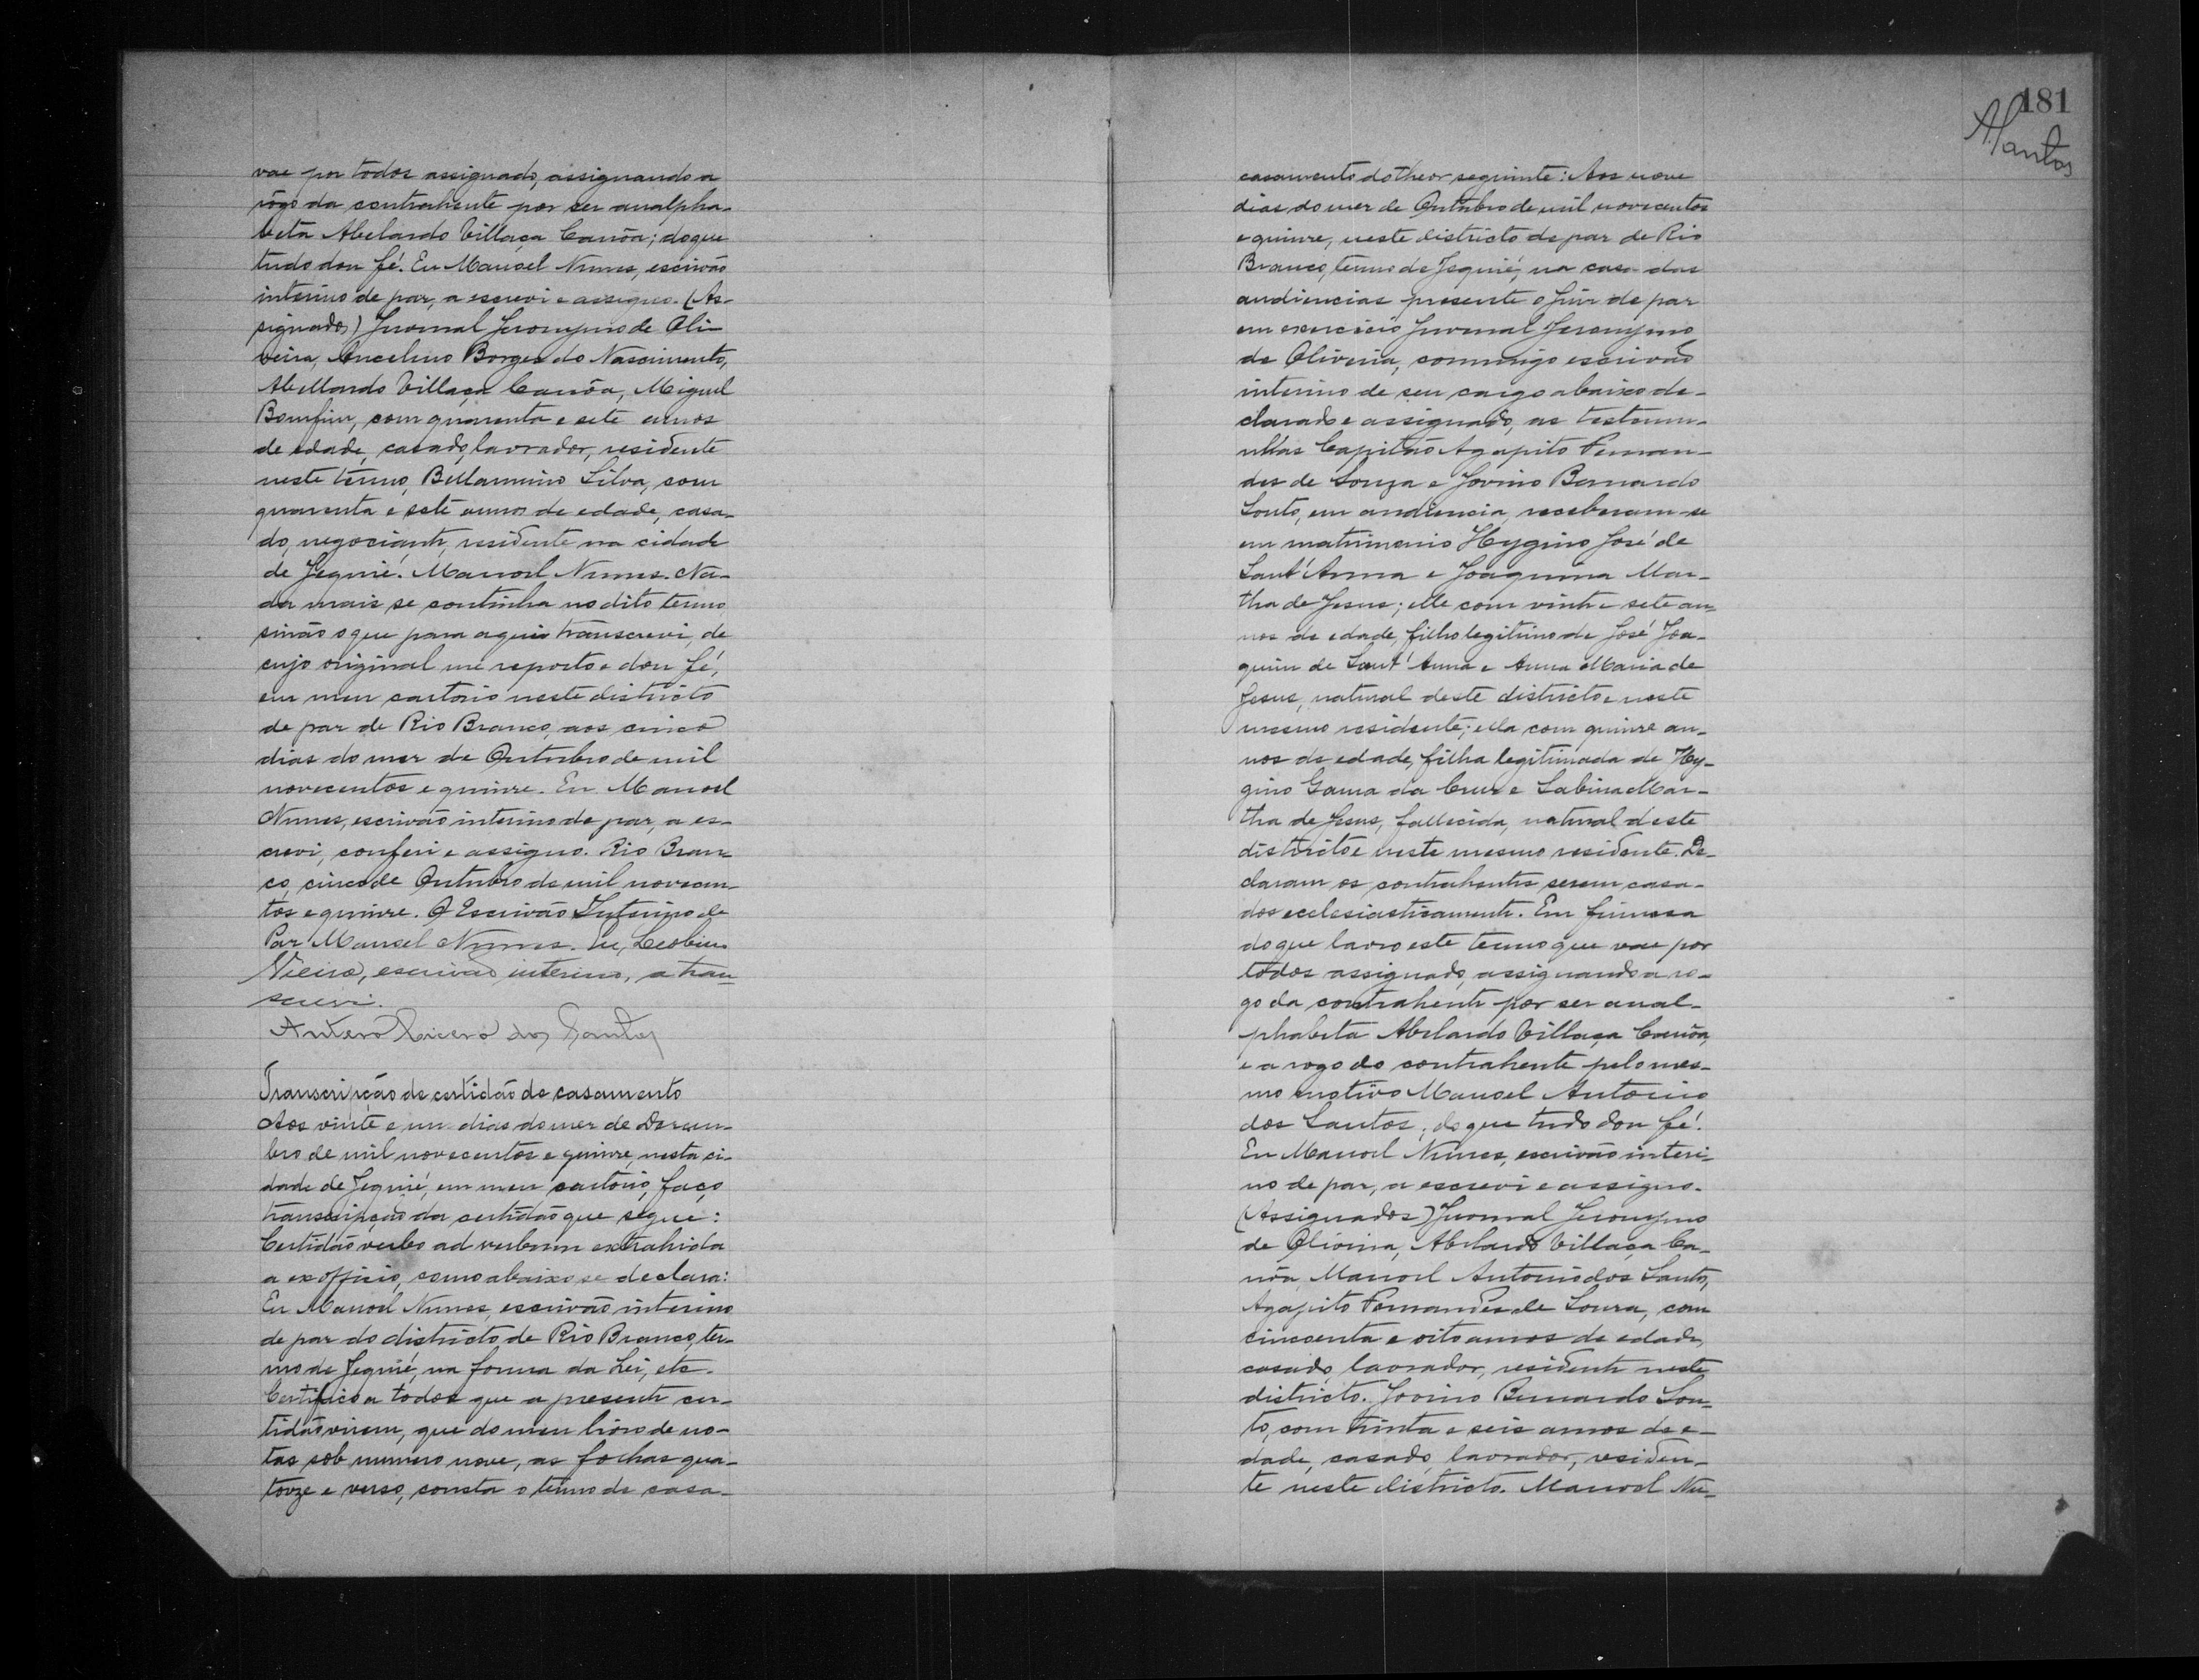 vae por todos assignado, assignando a
rôgo da contrahente por ser analpha-
beta Abelardo Villaça Canôa; do que
tudo dou fé. Eu Manoel Nunes, escrivão
interino de paz, a escrevi e assigno. (As-
signados) Juvenal Jeronymo de Oli-
veira, Ancelino Borges do Nascimento,
Abellardo Villaça Canôa, Miguel
Bomfim, com quarenta e sete annos
de edade, casado, lavrador, residente
neste têrmo, Bellarmino Silva, com
quarenta e sete annos de edade, casa-
do, negociante, residente na cidade
de Jequié. Manoel Nunes. Na-
da mais se continha no dito termo
sinão o que para aqui transcrevi, de
cujo original me reporto e dou fé,
em meu cartorio neste districto
de paz de Rio Branco, aos cinco
dias do mez de Outubro de mil
novecentos e quinze. Eu Manoel
Nunes, escrivão interino de paz, a es-
crevi, conferi e assigno. Rio Bran-
co, cinco de Outubro de mil novecen-
tos e quinze. O Escrivão Interino de
Paz Manoel Nunes. Eu, Leobino
Vieira, escrivão interino, a tran-
screvi.
Antero Cicero dos Santos
Transcripção de certidão de casamento
Aos vinte e um dias do mez de Dezem-
bro de mil novecentos e quinze, nesta ci-
dade de Jequié, em meu cartorio, faço
transcripção da certidão que segue:
Certidão verbo ad verbum extrahida
a ex officio, como abaixo se declara:
Eu Manoel Nunes, escrivão interino
de paz do districto de Rio Branco, ter-
mo de Jequié, na forma da Lei, etc.
Certifico a todos que a presente cer-
tidão virem, que do meu livro de no-
tas sob numero nove, as folhas qua-
torze e verso, consta o têrmo de casa-
181
ASantos
casamento do theor seguinte: Aos nove
dias do mez de Outubro de mil novecentos
e quinze, neste districto de paz de Rio
Branco, termo de Jequié, na casa das
audiencias presente o Juiz de paz
em exercicio Juvenal Jeronymo
de Oliveira, commigo escrivão
interino de seu cargo abaixo de-
clarado e assignado, as testemu-
nhas Capitão Agapito Fernan-
des de Souza e Jovino Bernardo
Souto, em audiencia, receberam-se
em matrimonio Hygino José de
Sant'Anna e Joaquina Mar-
tha de Jesus; elle com vinte e sete an-
nos de edade, filho legitimo de José Joa-
quim de Sant'Anna e Anna Maria de
Jesus, natural deste districto e neste
mesmo residente; ella com quinze an-
nos de edade, filha legitimada de Hy-
gino Gama da Cruz e Sabina Mar-
tha de Jesus, fallecida, natural deste
districto e neste mesmo residente. De-
claram os contrahentes serem casa-
dos ecclesiasticamente. Em firmeza
do que lavro este termo que vae por
todos assignado, assignando a ro-
go da contrahente por ser anal-
phabeta Abelardo Villaça Canôa,
e a rogo do contrahente pelo mes-
mo motivo Manoel Antonio
dos Santos; do que tudo dou fé.
Eu Manoel Nunes, escrivão interi-
no de paz, a escrevi e assigno.
(Assignados) Juvenal Jeronymo
de Oliveira, Abelardo Villaça Ca-
nôa, Manoel Antonio dos Santos,
Agapito Fernandes de Souza, com
cincoenta e oito annos de edade,
casado, lavrador, residente neste
districto. Jovino Bernardo Sou-
to, com trinta e seis annos de e-
dade, casado, lavrador, residen-
te neste districto. Manoel Nu-